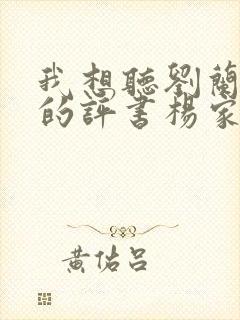 我想聽劉蘭
的評書楊家
黄佑呂